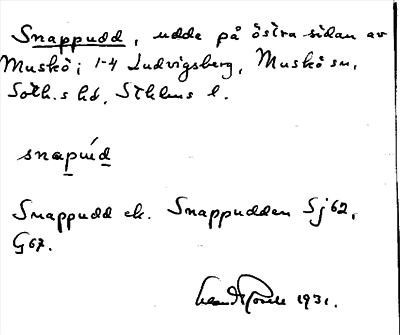 Snappudd, udde på östra sidan av
Muskö; 1-4 Ludvigsberg, Muskö sn,
Soth.s hd, Sthlms l.
snapùd
Snappudd ek. Snappudden Sj 62,
G 67.
1931.